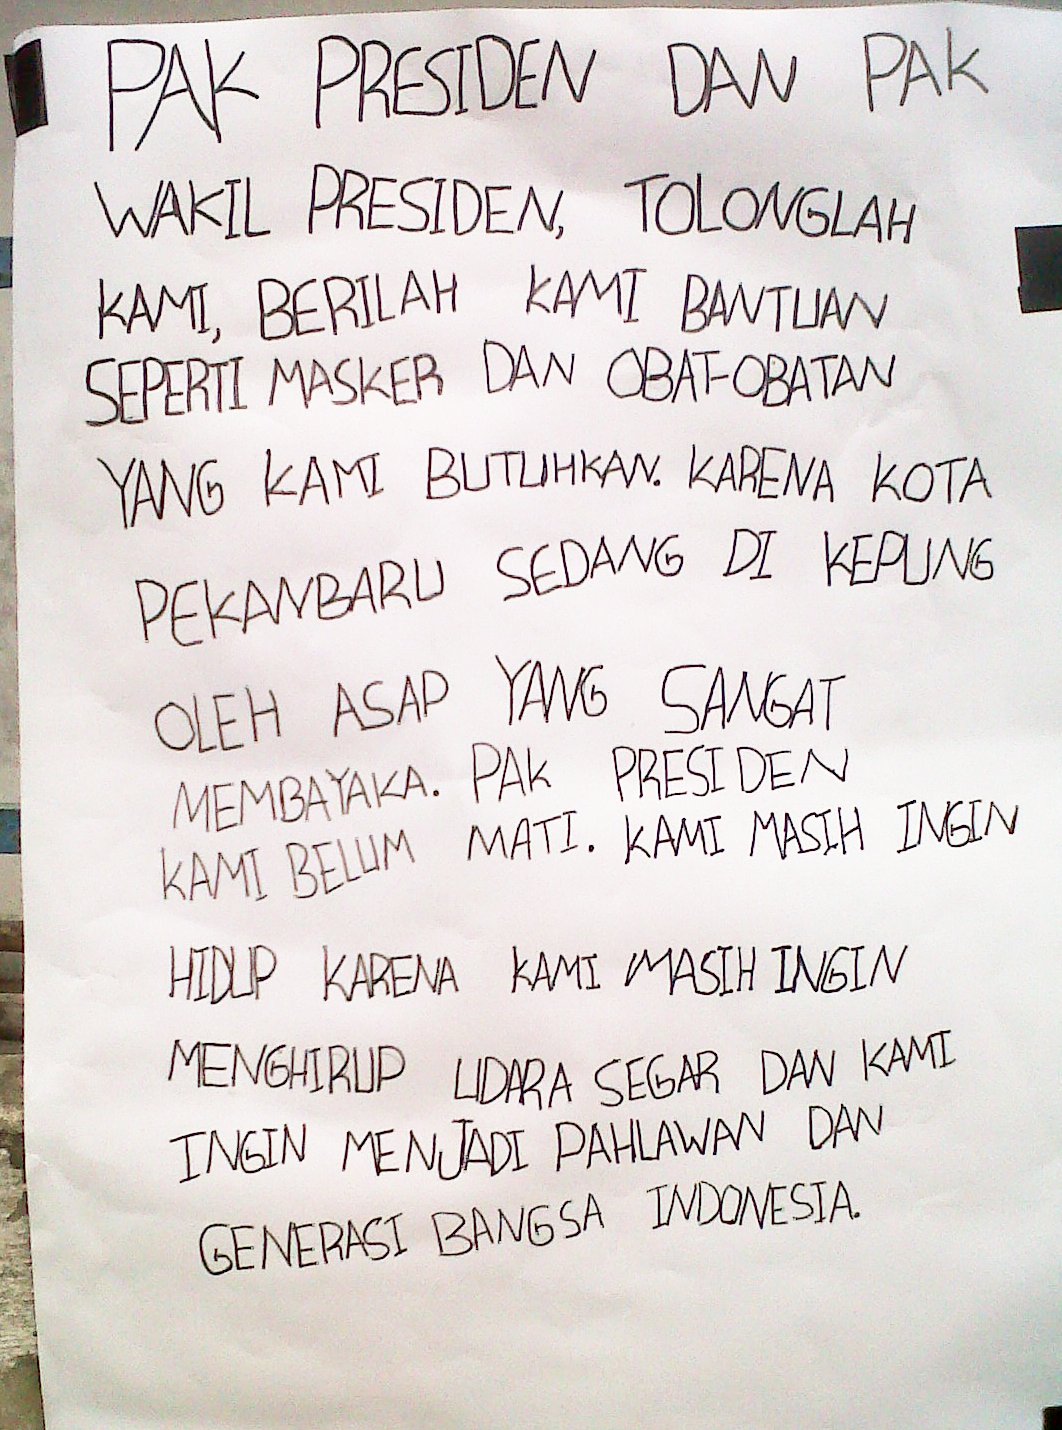 PAK PRESIDEN DAN PAK
WAKIL PRESIDEN, TOLONGLAH
KAMI, BERILAH KAMI BANTUAN
SEPERTI MASKER DAN OBAT-OBATAN
YANG KAMI BUTUHKAN. KARENA KOTA
PEKANBARU SEDANG DI KEPUNG
OLEH ASAP YANG SANGAT
MEMBAYAKA. PAK PRESIDEN
KAMI BELUM MATI. KAMI MASIH INGIN
HIDUP KARENA KAMI MASIH INGIN
MENGHIRUP UDARA SEGAR DAN KAMI
INGIN MENJADI PAHLAWAN DAN
GENERASI BANGSA INDONESIA.